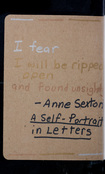 I fear
I will be ripped
open
and found insight
- Anne Sexton
A Self-Portrait
in Letters